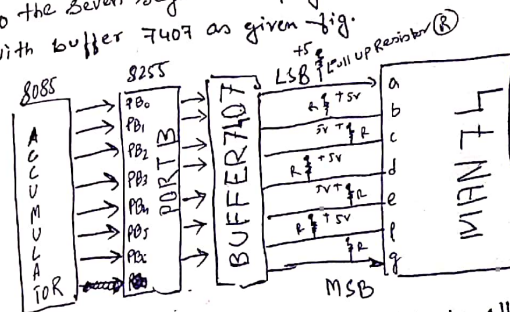 o the seven seg
with buffer 7407 as given fig.
8085
ACCUMULATOR
8255
PB0
PB1
PB2
PB3
PB4
PB5
PB6
PORT B
BUFFER 7407
LSB
+5
Pull up Resistor (R)
R +5v
5v + R
R +5v
5v + R
R +5v
R
MSB
a
b
c
d
e
f
g
MAN 74